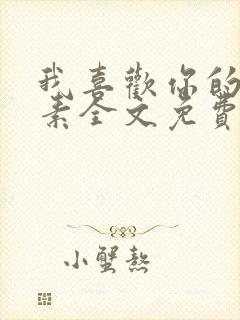 我喜歡你的
素全文免費
小蟹熬